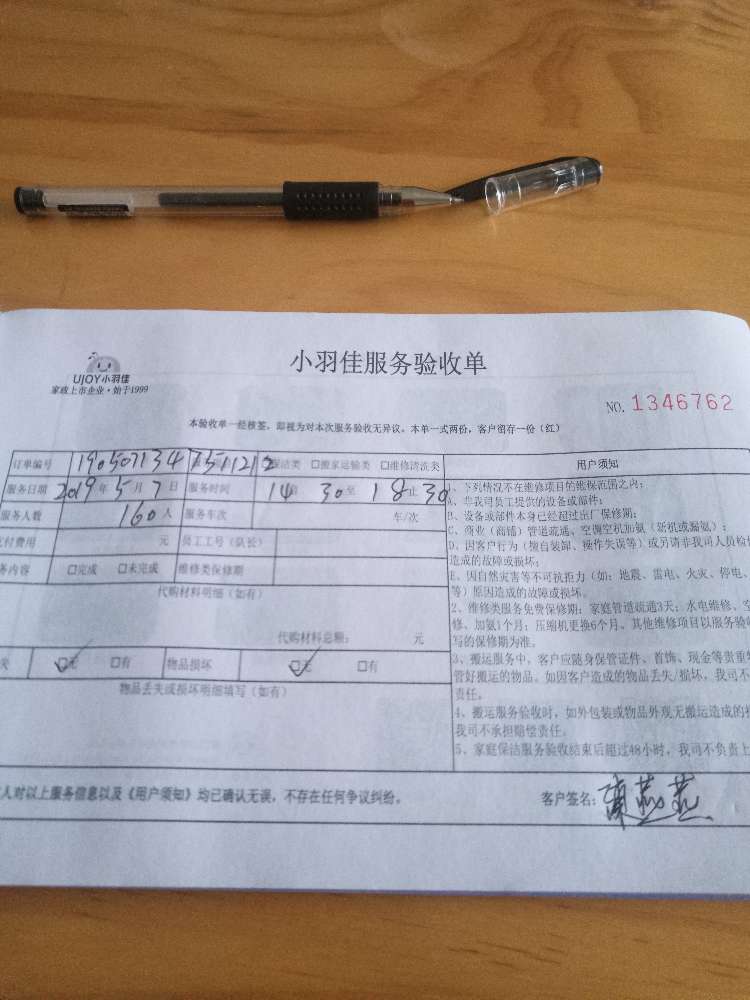 小羽佳服务验收单
UJOY小羽佳
家政上市企业·始于1999
NO. 1346762
本验收单一经核签，即视为对本次服务验收无异议。本单一式两份，客户留存一份（红）
订单编号 190507134 保洁类 □搬家运输类 □维修清洗类
服务日期 2019年5月7日 服务时间 14 30至18止30
服务人数 160人 服务车次 车/次
付费用 元 员工工号（队长）
务内容 □完成 □未完成 维修类保修期
代购材料明细（如有）
代购材料总额： 元
失 □无 □有 物品损坏 □无 □有
物品丢失或损坏明细填写（如有）
用户须知
1、下列情况不在维修项目的维保范围之内：
A、非我司员工提供的设备或部件；
B、设备或部件本身已经超过出厂保修期；
C、商业（商铺）管道疏通、空调空机加氨（新机或漏氨）；
D、因客户行为（擅自装卸、操作失误等）或另请非我司人员检
造成的故障或损坏；
E、因自然灾害等不可抗拒力（如：地震、雷电、火灾、停电、
等）原因造成的故障或损坏。
2、维修类服务免费保修期：家庭管道疏通3天；水电维修、空
修、加氨1个月；压缩机更换6个月。其他维修项目以服务验
写的保修期为准。
3、搬运服务中，客户应随身保管证件、首饰、现金等贵重
管好搬运的物品。如因客户造成的物品丢失/损坏，我司不
责任。
4、搬运服务验收时，如外包装或物品外观无搬运造成的
我司不承担赔偿责任。
5、家庭保洁服务验收结束后超过48小时，我司不负责上
人对以上服务信息以及《用户须知》均已确认无误，不存在任何争议纠纷。
客户签名：